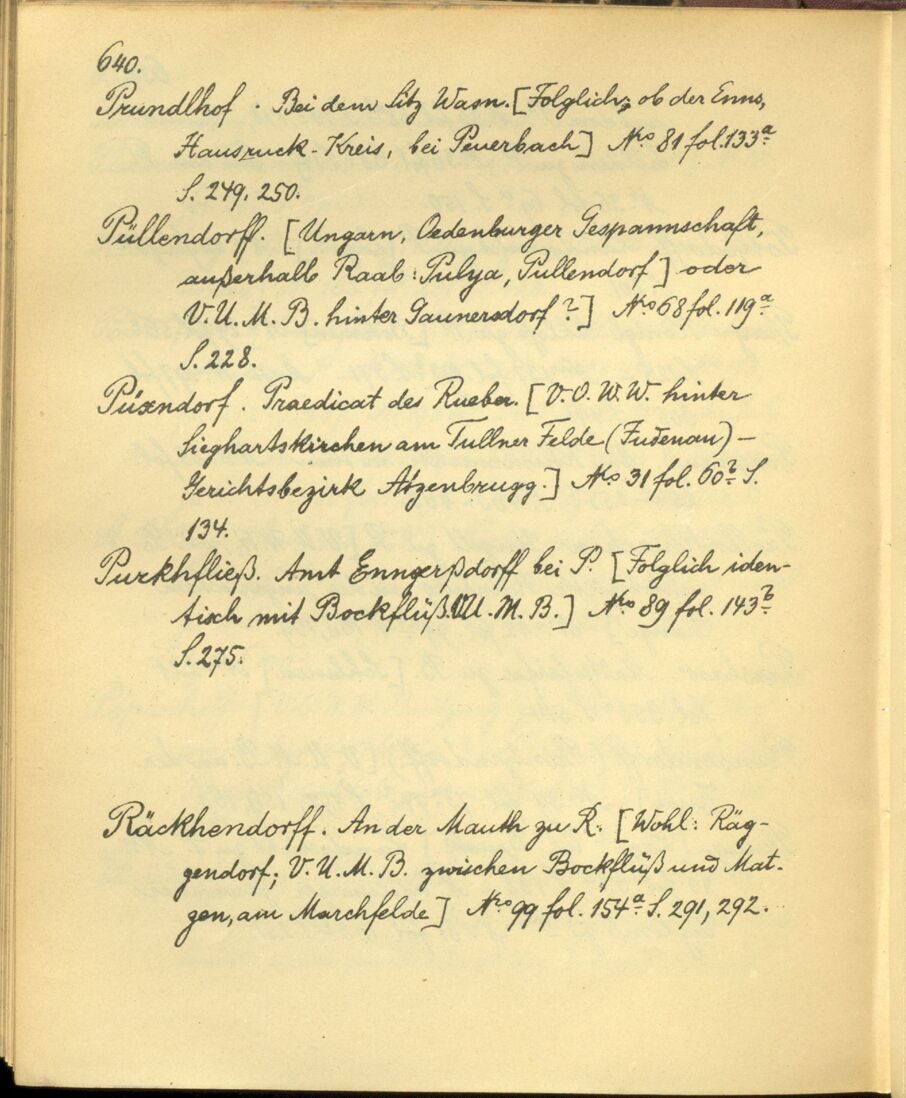 640.
Prundlhof. Bei dem Sitz Wasn. [Folglich, ob der Enns,
Hausruck-Kreis, bei Peuerbach] Nro 81 fol. 133a
S. 249, 250.
Püllendorff. [Ungarn, Oedenburger Gespannschaft,
außerhalb Raab: Pulya, Pullendorf] oder
V. U. M. B. hinter Gaunersdorf?] Nro 68 fol. 119a
S. 228.
Püxendorf. Praedicat des Rueber. [V. O. W. W. hinter
Sieghartskirchen am Tullner Felde (Judenau) —
Gerichtsbezirk Atzenbrugg.] Nro 31 fol. 60b S.
134.
Purkhfließ. Amt Enngerßdorff bei P. [Folglich iden-
tisch mit Bockflüß V. U. M. B.] Nro 89 fol. 143b
S. 275.
Räckhendorff. An der Mauth zu R. [Wohl: Räg-
gendorf; V. U. M. B. zwischen Bockflüß und Mat-
zen, am Marchfelde] Nro 99 fol. 154a S. 291, 292.